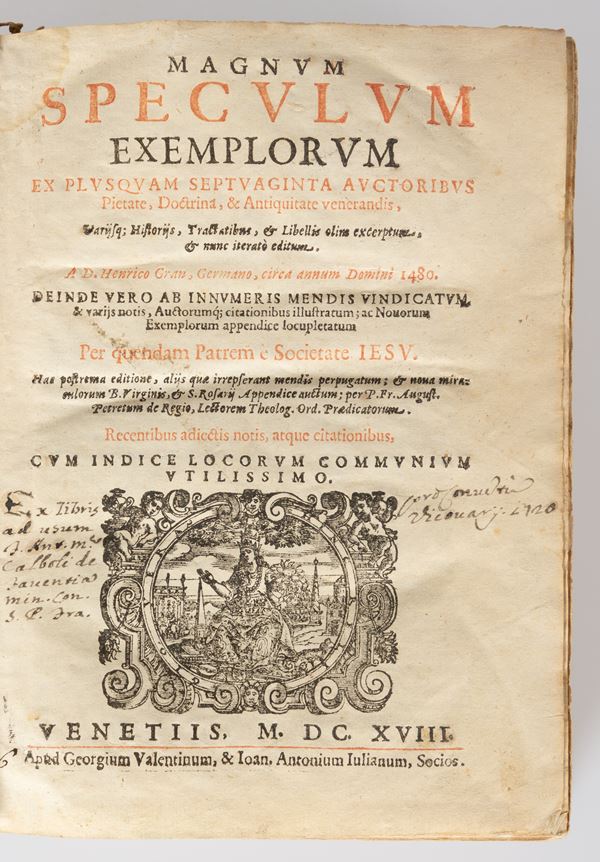 MAGNVM
SPECVLVM
EXEMPLORVM
EX PLVSQVAM SEPTVAGINTA AVCTORIBVS
Pietate, Doctrina, & Antiquitate venerandis,
Varijsq; Historijs, Tractatibus, & Libellis olim excerptum,
& nunc iteratò editum.
A D. Henrico Gran, Germano, circa annum Domini 1480.
DEINDE VERO AB INNVMERIS MENDIS VINDICATVM,
& varijs notis, Auctorumq; citationibus illustratum; ac Nouorum
Exemplorum appendice locupletatum
Per quendam Patrem è Societate IESV.
Hac postrema editione, alijs quæ irrepserant mendis perpugatum; & noua mira-
culorum B. Virginis, & S. Rosarij Appendice auctum; per P. Fr. August.
Petretum de Regio, Lectorem Theolog. Ord. Prædicatorum.
Recentibus adiectis notis, atque citationibus,
CVM INDICE LOCORVM COMMVNIVM
VTILISSIMO.
Ex libris
ad usum
Calboli de
fauentia
min. Con.
S. P. Fra.
VENETIIS, M. DC. XVIII.
Apud Georgium Valentinum, & Ioan. Antonium Iulianum, Socios.